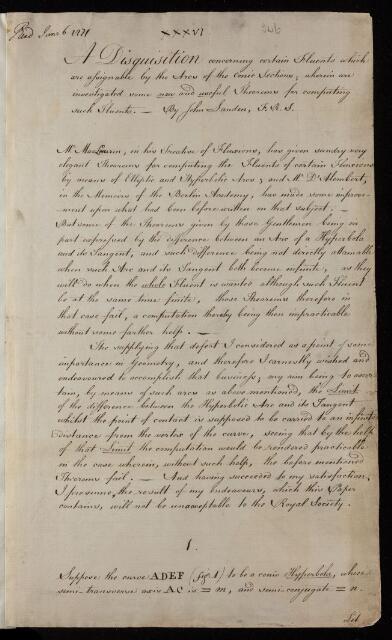 Read June 6 1771
XXXVI
346
A Disquisition concerning certain Fluents which
are assignable by the Arcs of the Conic Sections; wherein are
investigated some new and useful Theorems for computing
such Fluents. — By John Landen, F. R. S.
Mr. MacLaurin, in his Treatise of Fluxions, has given sundry very
elegant Theorems for computing the Fluents of certain Fluxions
by means of Elliptic and Hyperbolic Arcs; and Mr. D'Alembert,
in the Memoirs of the Berlin Academy, has made some improve-
ment upon what had been before written on that subject. —
But some of the Theorems given by those Gentlemen being in
part expressed by the difference between an Arc of a Hyperbola
and its Tangent, and such difference being not directly attainable
when such Arc and its Tangent both become infinite, as they
will do when the whole Fluent is wanted although such Fluent
be at the same time finite, those Theorems therefore in
that case fail, a computation thereby being then impracticable
without some farther help. —
The supplying that defect I considered as a point of some
importance in Geometry, and therefore I earnestly wished and
endeavoured to accomplish that business; my aim being to ascer-
tain, by means of such arcs as above mentioned, the Limit
of the difference between the Hyperbolic Arc and its Tangent
whilst the point of contact is supposed to be carried to an infinite
distance from the vertex of the curve, seeing that by the help
of that Limit the computation would be rendered practicable
in the case wherein, without such help, the before mentioned
Theorems fail. — And having succeeded to my satisfaction,
I presume, the result of my endeavours, which this Paper
contains, will not be unacceptable to the Royal Society.
1.
Suppose the curve ADEF (fig. 1) to be a conic Hyperbola, whose
semi-transverse axis AC is = m, and semi-conjugate = n.
Let